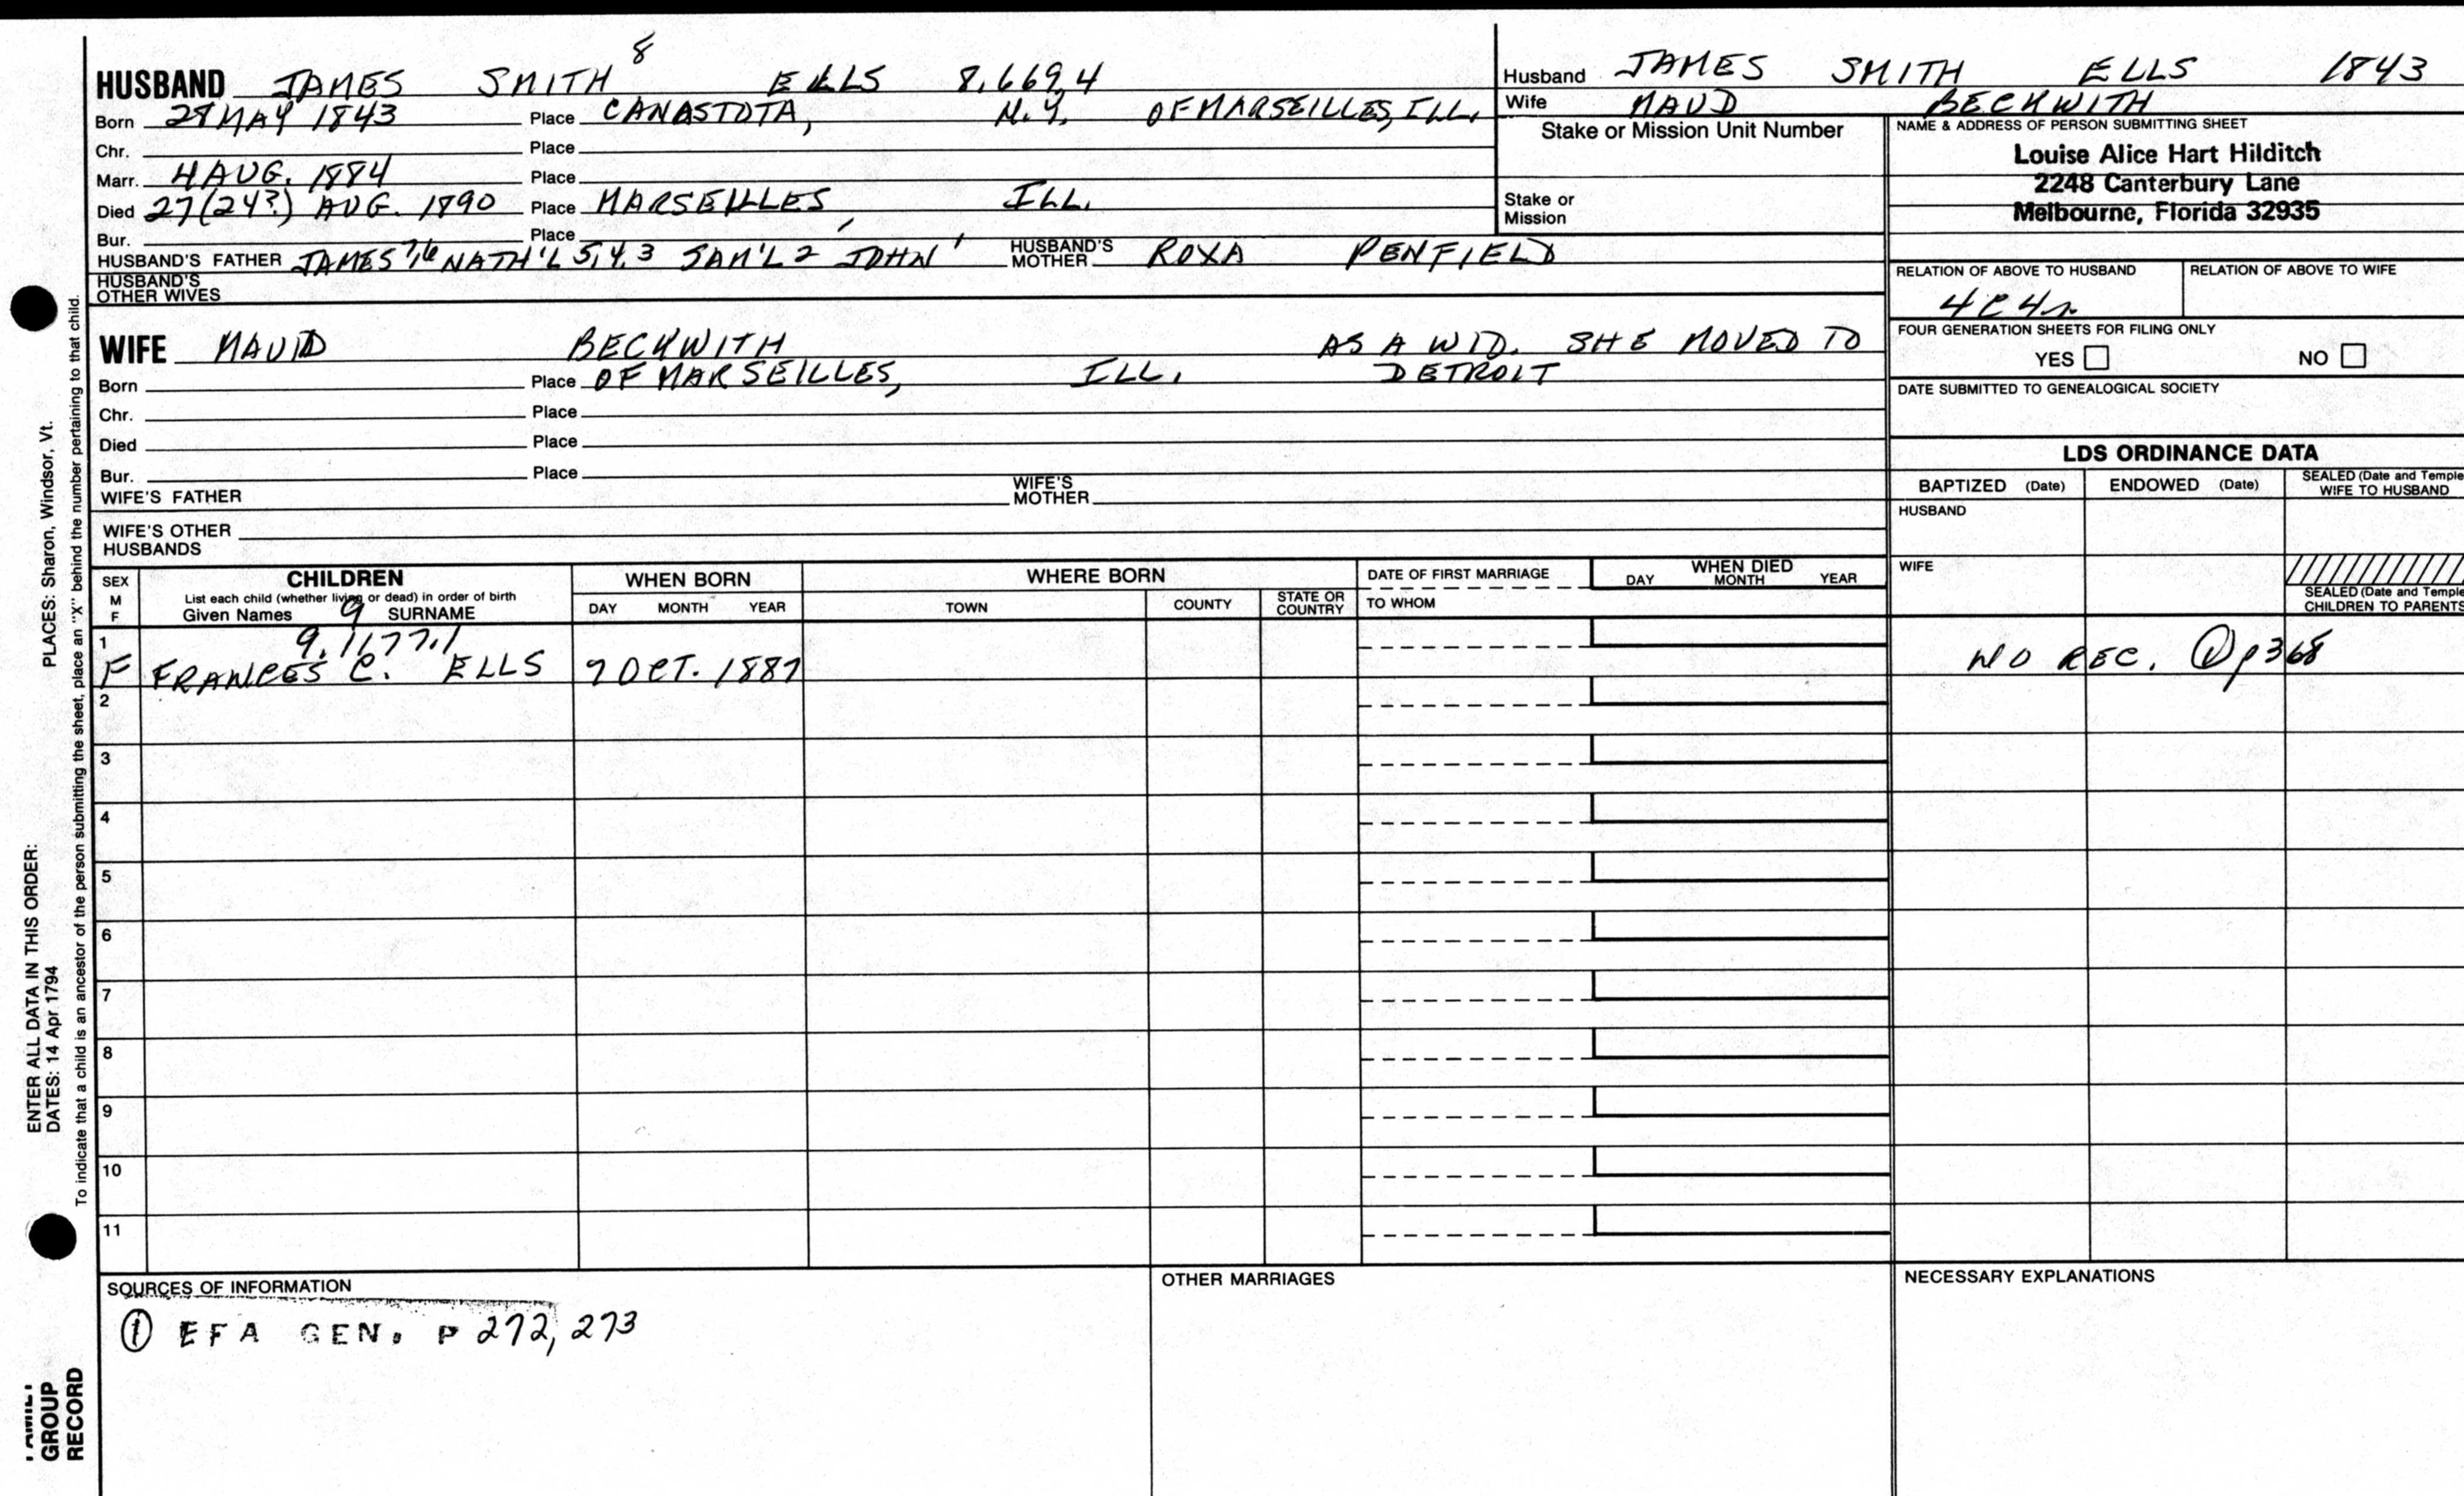 HUSBAND JAMES SMITH 8 ELLS 8.669.4
Born 28 MAY 1843 Place CANASTOTA, N.Y. OF MARSEILLES, ILL.
Chr. Place
Marr. 4 AUG. 1884 Place
Died 27(24?) AUG. 1890 Place MARSEILLES, ILL.
Bur. Place
HUSBAND'S FATHER JAMES 7,6 NATH'L 5,4,3 SAM'L 2 JOHN 1 HUSBAND'S MOTHER ROXA PENFIELD
HUSBAND'S OTHER WIVES
WIFE MAUD BECKWITH AS A WID. SHE MOVED TO
Born Place OF MARSEILLES, ILL. DETROIT
Chr. Place
Died Place
Bur. Place
WIFE'S FATHER WIFE'S MOTHER
WIFE'S OTHER HUSBANDS
Husband JAMES SMITH ELLS 1843
Wife MAUD BECKWITH
Stake or Mission Unit Number
Stake or Mission
NAME & ADDRESS OF PERSON SUBMITTING SHEET
Louise Alice Hart Hilditch
2248 Canterbury Lane
Melbourne, Florida 32935
RELATION OF ABOVE TO HUSBAND RELATION OF ABOVE TO WIFE
4C4r
FOUR GENERATION SHEETS FOR FILING ONLY
YES NO
DATE SUBMITTED TO GENEALOGICAL SOCIETY
LDS ORDINANCE DATA
BAPTIZED (Date) ENDOWED (Date) SEALED (Date and Temple) WIFE TO HUSBAND
HUSBAND
WIFE
SEALED (Date and Temple) CHILDREN TO PARENTS
SEX M F
CHILDREN
List each child (whether living or dead) in order of birth
Given Names 9 SURNAME
WHEN BORN
DAY MONTH YEAR
WHERE BORN
TOWN COUNTY STATE OR COUNTRY
DATE OF FIRST MARRIAGE
TO WHOM
WHEN DIED
DAY MONTH YEAR
1 9.1177.1
F FRANCES C. ELLS 7 OCT. 1887 NO REC. ① p 368
2
3
4
5
6
7
8
9
10
11
SOURCES OF INFORMATION
① EFA GEN. P 272, 273
OTHER MARRIAGES
NECESSARY EXPLANATIONS
ENTER ALL DATA IN THIS ORDER:
DATES: 14 Apr 1794 PLACES: Sharon, Windsor, Vt.
To indicate that a child is an ancestor of the person submitting the sheet, place an "X" behind the number pertaining to that child.
FAMILY
GROUP
RECORD